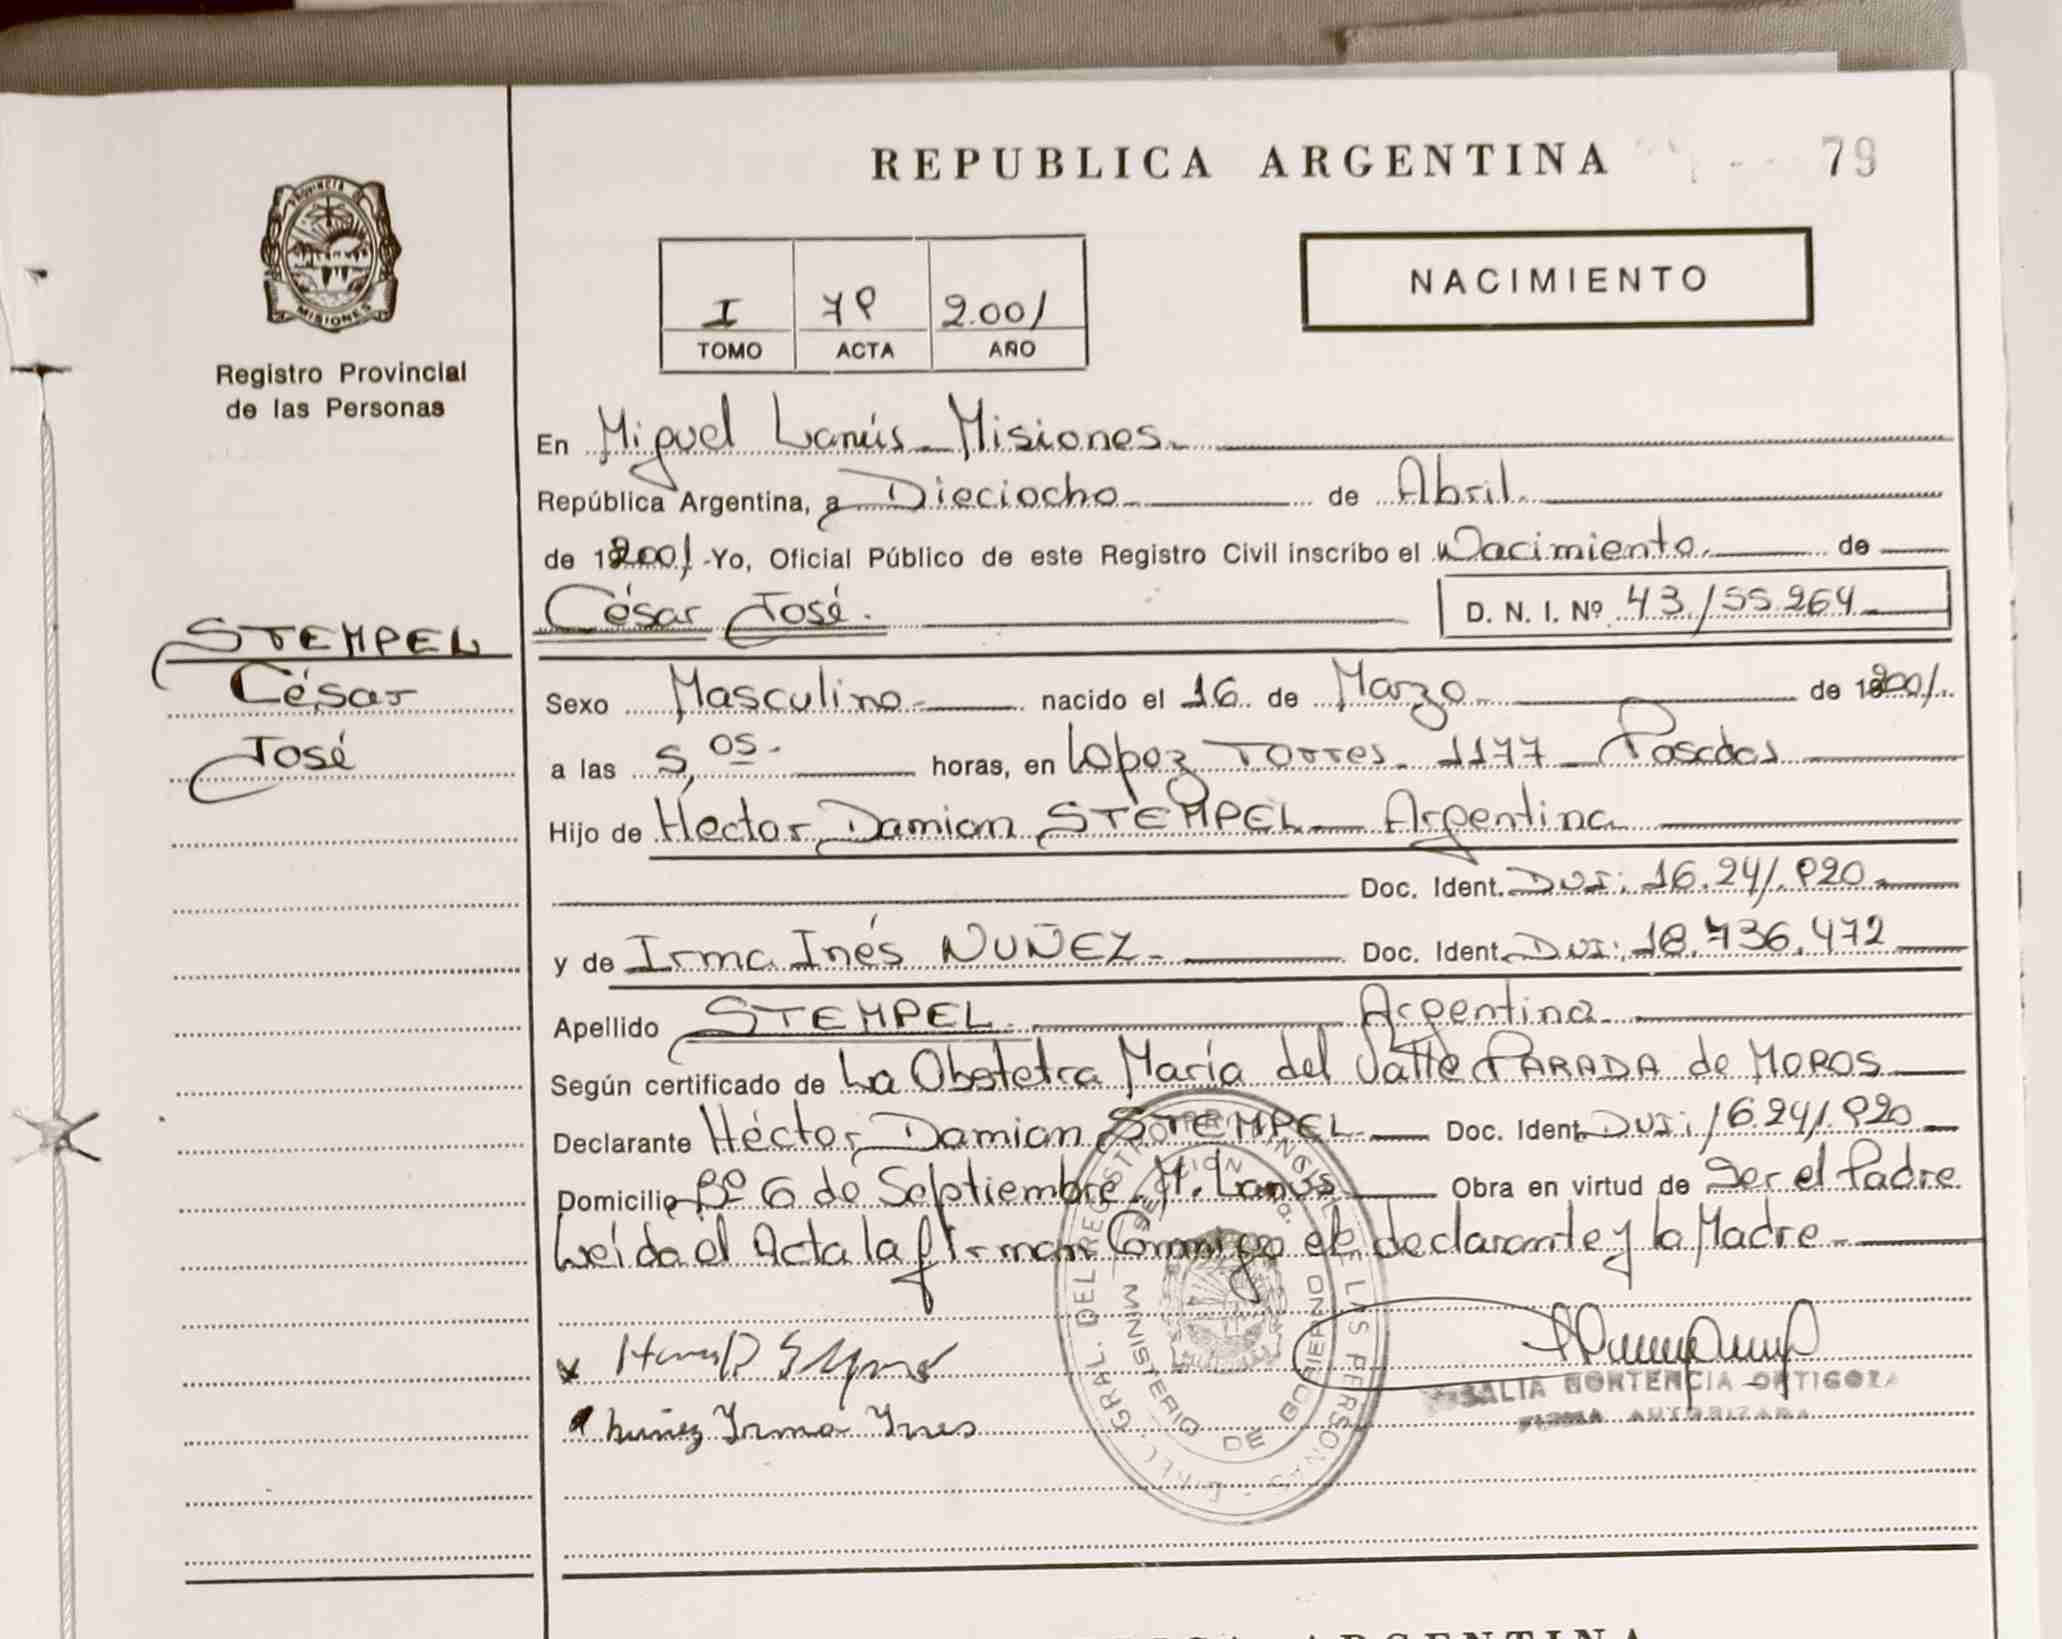 REPUBLICA ARGENTINA 79
PROVINCIA DE
MISIONES
Registro Provincial
de las Personas
I 79 2.001
TOMO ACTA AÑO
NACIMIENTO
En Miguel Lanús - Misiones.
República Argentina, a Dieciocho de Abril.
de 19 2001 -Yo, Oficial Público de este Registro Civil inscribo el Nacimiento. de
César José. D. N. I. Nº 43.155.264
STEMPEL
César
José
Sexo Masculino nacido el 16 de Marzo de 19 2001.
a las 5,05. horas, en Lopez Torres. 1177 - Posadas
Hijo de Héctor Damian STEMPEL - Argentina
Doc. Ident. DNI: 16.241.920
y de Irma Inés NUÑEZ. Doc. Ident. DNI: 18.736.472
Apellido STEMPEL. Argentina
Según certificado de La Obstetra María del Valle PARADA de MOROS
Declarante Héctor Damian STEMPEL Doc. Ident. DNI: 16.241.920
Domicilio Bº 6 de Septiembre. M. Lanús Obra en virtud de Ser el Padre
Leída el Acta la firman Conmigo el declarante y la Madre
Nuñez Irma Ines
HORTENCIA ORTIGOZA
FIRMA AUTORIZADA
GRAL. DEL REGISTRO PROVINCIAL DE LAS PERSONAS
MINISTERIO DE GOBIERNO
ARGENTINA